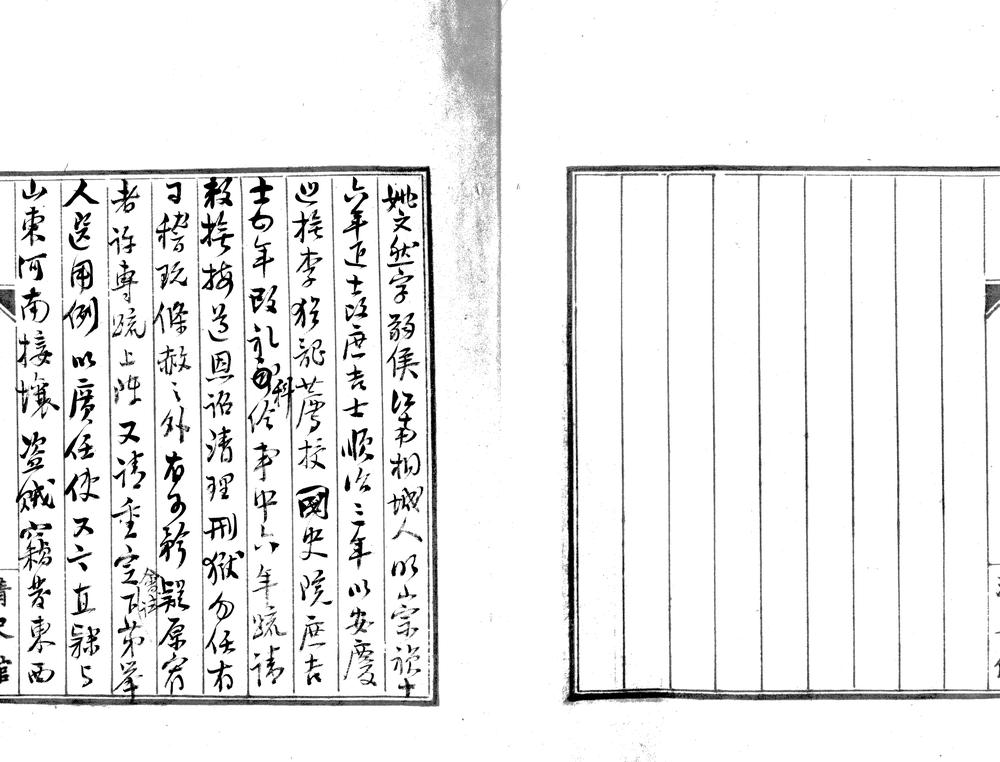 姚文然字弱侯江南桐城人明崇禎十
六年進士改庶吉士順治三年以安慶
巡撫李猶龍薦授國史院庶吉
士五年改礼科給事中六年疏請
敕撫按遵恩詔清理刑獄勿任有
司稽玩條赦之外有可矜疑原宥
者許專疏上陳又請重定會試下第舉
人選用例以廣任使又言直隸与
山東河南接壤盜賊竊發東西
清史館